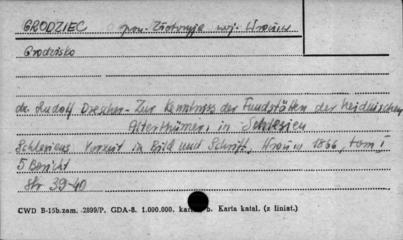 GRODZIEC pow. Złotoryja woj. Wrocław
Grodzisko
dr. Rudolf Drescher - Zur Kenntniss der Fundstätten der heidnischen
Alterthümer in Schlesien
Schlesiens Vorzeit in Bild und Schrift, Wrocław 1866, tom I
5 Bericht
Str 39-40
CWD B-15b.zam. -2899/P. GDA-8. 1.000.000. Karta katal. (z liniat.)